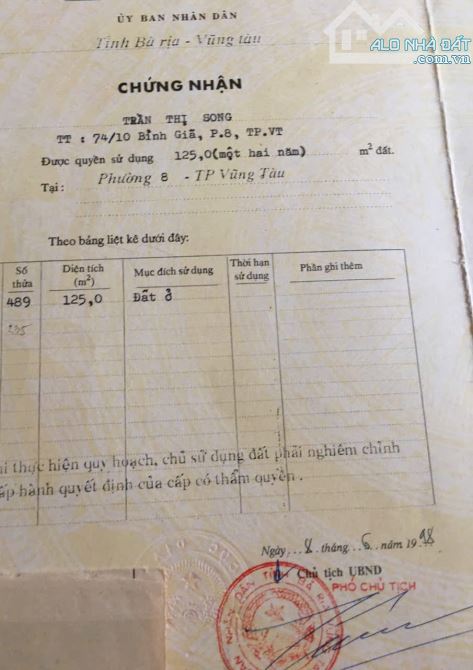 ỦY BAN NHÂN DÂN
Tỉnh Bà rịa - Vũng tàu
ALO NHÀ ĐẤT
.com.vn
CHỨNG NHẬN
TRẦN THỊ SONG
TT : 74/10 Bình Giã, P.8, TP.VT
Được quyền sử dụng 125,0(một hai năm) m² đất.
Tại : Phường 8 - TP Vũng Tàu
Theo bảng liệt kê dưới đây:
Số thửa Diện tích (m²) Mục đích sử dụng Thời hạn sử dụng Phần ghi thêm
489 125,0 Đất ở
thực hiện quy hoạch, chủ sử dụng đất phải nghiêm chỉnh
hành quyết định của cấp có thẩm quyền .
Ngày 8 tháng 6 năm 1998
Chủ tịch UBND
PHÓ CHỦ TỊCH